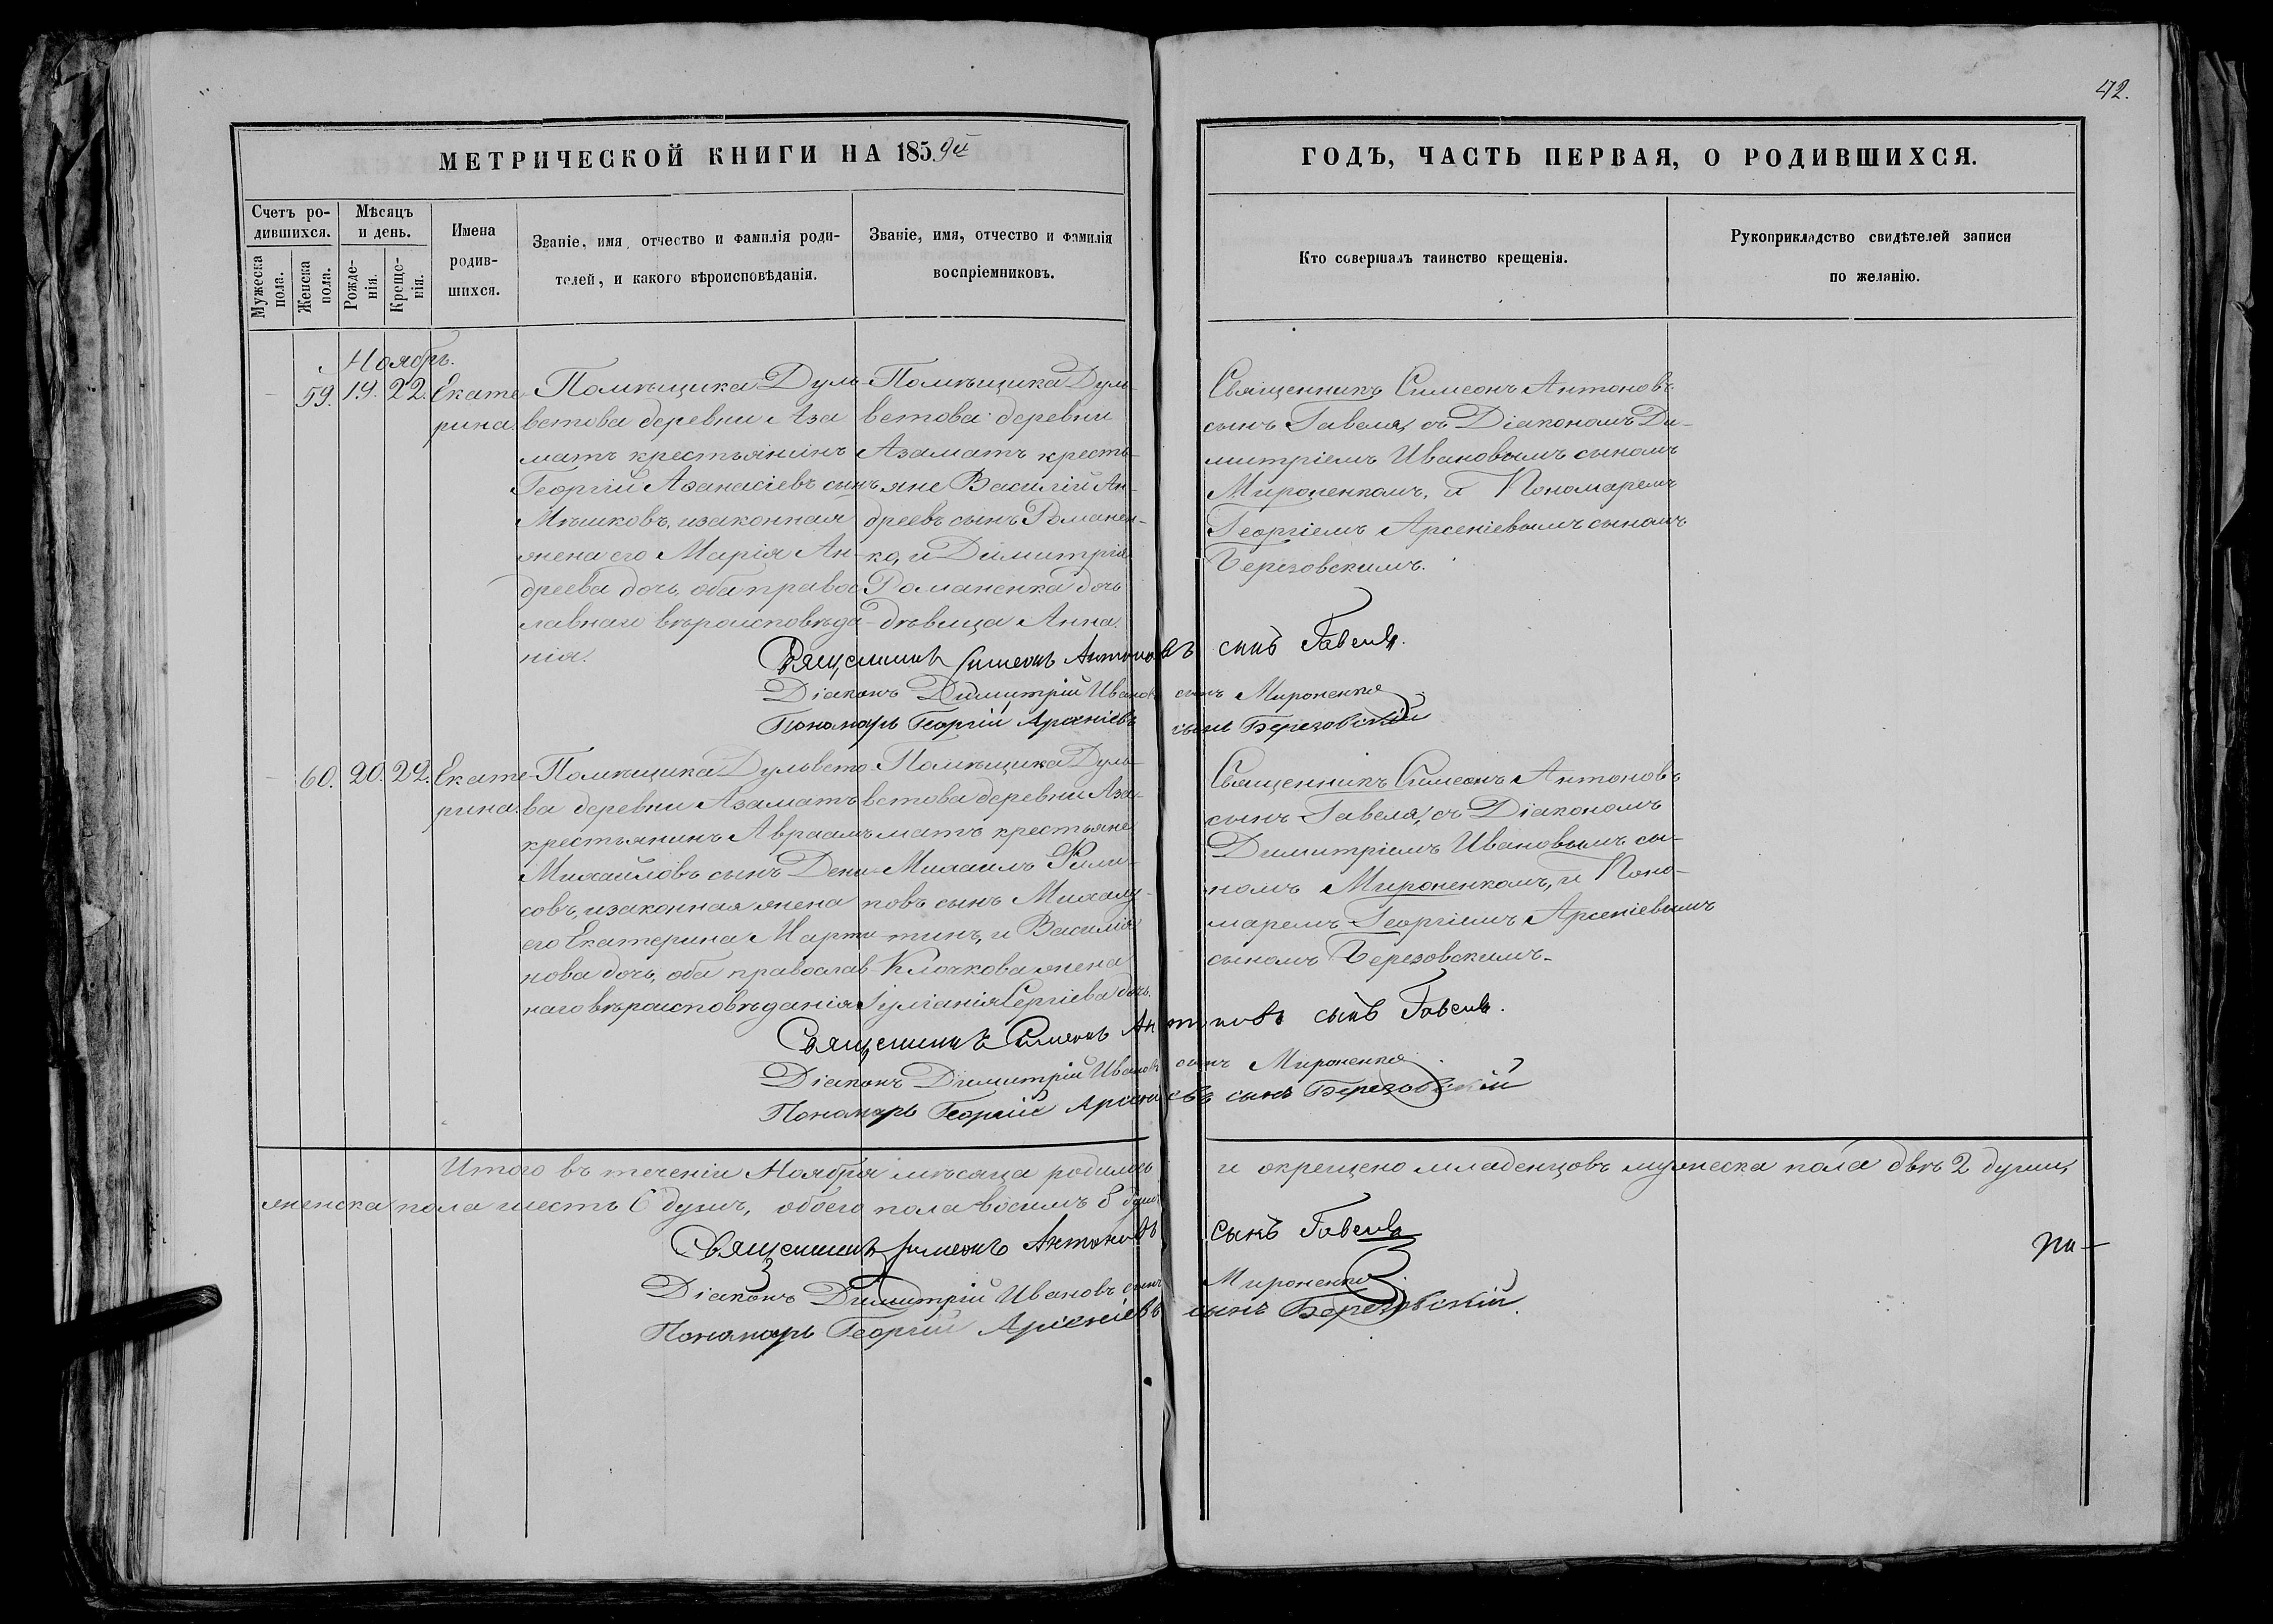 42.
МЕТРИЧЕСКОЙ КНИГИ НА 1859й
ГОДЪ, ЧАСТЬ ПЕРВАЯ, О РОДИВШИХСЯ.
Счетъ ро-
дившихся.
Мужеска
пола.
Женска
пола.
Мѣсяцъ
и день.
Рожде-
нія.
Креще-
нія.
Имена
родив-
шихся.
Званіе, имя, отчество и фамилія роди-
телей, и какого вѣроисповѣданія.
Званіе, имя, отчество и фамилія
воспріемниковъ.
Кто совершалъ таинство крещенія.
Рукоприкладство свидѣтелей записи
по желанію.
Ноябрь.
59. 19. 22.
Екате-
рина.
Помѣщика Дуль-
ветова деревни Аза
матъ крестьянинъ
Георгій Аѳанасіевъ сынъ
Мѣшковъ, и законная
жена его Марія Ан-
дреева дочь, оба правос
лавнаго вѣроисповѣда-
нія.
Помѣщика Дуль-
ветова деревни
Азаматъ кресть-
яне Василій Ан-
дреевъ сынъ Романен-
ко, и Димитрія
Романенка дочь
дѣвица Анна.
Священникъ Симеонъ Антоновъ
сынъ Гавеля, съ Діакономъ Ди-
митріемъ Ивановымъ сыномъ
Мироненкомъ, и Пономаремъ
Георгіемъ Арсеніевымъ сыномъ
Березовскимъ.
Священникъ Симеонъ Антоновъ сынъ Гавеля.
Діаконъ Димитрій Ивановъ сынъ Мироненко
Пономарь Георгій Арсеніевъ сынъ Березовскій
60. 20. 22.
Екате-
рина.
Помѣщика Дульвето-
ва деревни Азаматъ
крестьянинъ Авраамъ
Михайловъ сынъ Дени-
совъ, и законная жена
его Екатерина Марти-
нова дочь, оба православ-
наго вѣроисповѣданія
Помѣщика Дуль-
ветова деревни Аза-
матъ крестьяне
Михаилъ Фили-
повъ сынъ
и Василія
Клочкова жена
Іуліанія Сергіева дочь.
Священникъ Симеонъ Антоновъ
сынъ Гавеля, съ Діакономъ
Димитріемъ Ивановымъ сы-
номъ Мироненкомъ, и Поно-
маремъ Георгіемъ Арсеніевымъ
сыномъ Березовскимъ.
Священникъ Симеонъ Антоновъ сынъ Гавеля.
Діаконъ Димитрій Ивановъ сынъ Мироненко
Пономарь Георгій Арсеніевъ сынъ Березовскій
Итого въ теченіи Ноября мѣсяца родилось и окрещено младенцовъ мужеска пола двѣ 2 души,
женска пола шесть 6 душъ, обоего пола восимъ 8 душъ
Священникъ Симеонъ Антоновъ сынъ Гавеля
Діаконъ Димитрій Ивановъ сынъ Мироненко
Пономарь Георгій Арсеніевъ сынъ Березовскій.